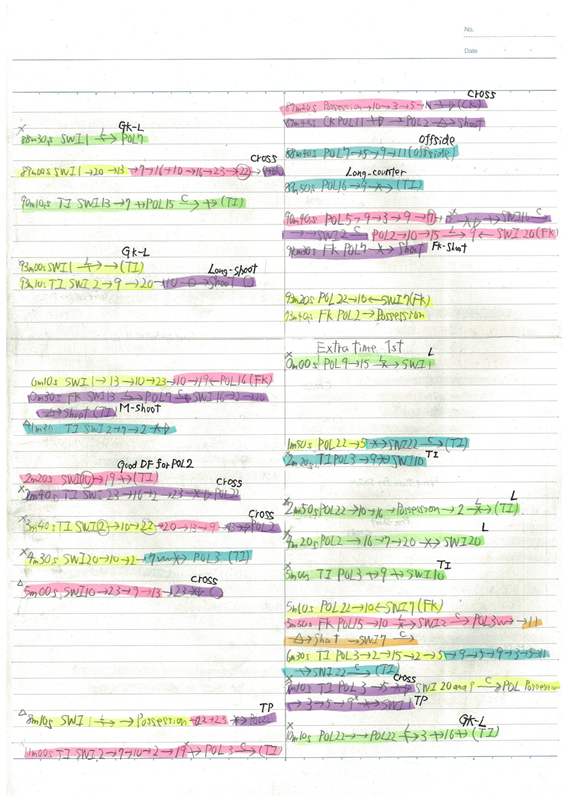 No.
Date
Gk-L
x 88m30s SWI1 → POL7
Cross
89m00s SWI1→20→13→7→16→10→16→23→22→
90m10s TI SWI13→7→POL15 → (TI)
Gk-L
93m00s SWI1 → → (TI)
Long-shoot
93m10s TI SWI2→9→20→10→ shoot
0m10s SWI1→13→10→23→10→19←POL16(FK)
0m30s FK SWI13→POL9 → SWI16→2→20
→shoot(TI) M-shoot
△1m30 TI SWI2→7→2→
Good DF for POL2
2m20s SWI10→19→(TI)
Cross
x2m40s TI SWI23→16→2→23→POL22
Cross
x3m40s TI SWI2→10→22→20→13→9→13→POL2
x4m30s SWI20→10→2→9→POL3 (TI)
Cross
△5m00s SWI10→23→9→13→23→C
TP
△8m10s SWI1 → → Possession→22→23→POL22
11m00s TI SWI2→7→10→2→19→POL3 →(TI)
Cross
87m20s Possession→10→3→5→ →(CK)
87m45s CK POL11 → POL2→shoot
Offside
88m40s POL7→5→9→11(Offside)
Long-counter
89m50s POL16→9→(TI)
90m40s POL5→9→3→9→
→SWI2 POL2→10→15→9←SWI20(FK)
FK POL7→shoot FK-shoot
93m20s POL22→10←SWI7(FK)
93m40s FK POL2→Possession
Extra time 1st
L
x0m00s POL9→15→SWI1
1m50s POL22→5→SWI22→(TI)
TI
x2m20s TI POL3→9→SWI10
L
x2m50s POL22→10→16→Possession→2→(TI)
L
x4m20s POL2→16→7→20→SWI20
TI
5m00s TI POL3→9→SWI10
5m10s POL22→10←SWI7(FK)
5m50s FK POL15→10→SWI2→POL3→11
→shoot→SWI7
6m30s TI POL3→2→15→2→5→9→5→9→3→5→11
→SWI22→(TI)
Cross
x6m10s TI POL3→5→SWI20 →POL Possession
→3→5→9→SWI1 TP
GK-L
x10m10s POL22→→POL22→3→16→(TI)